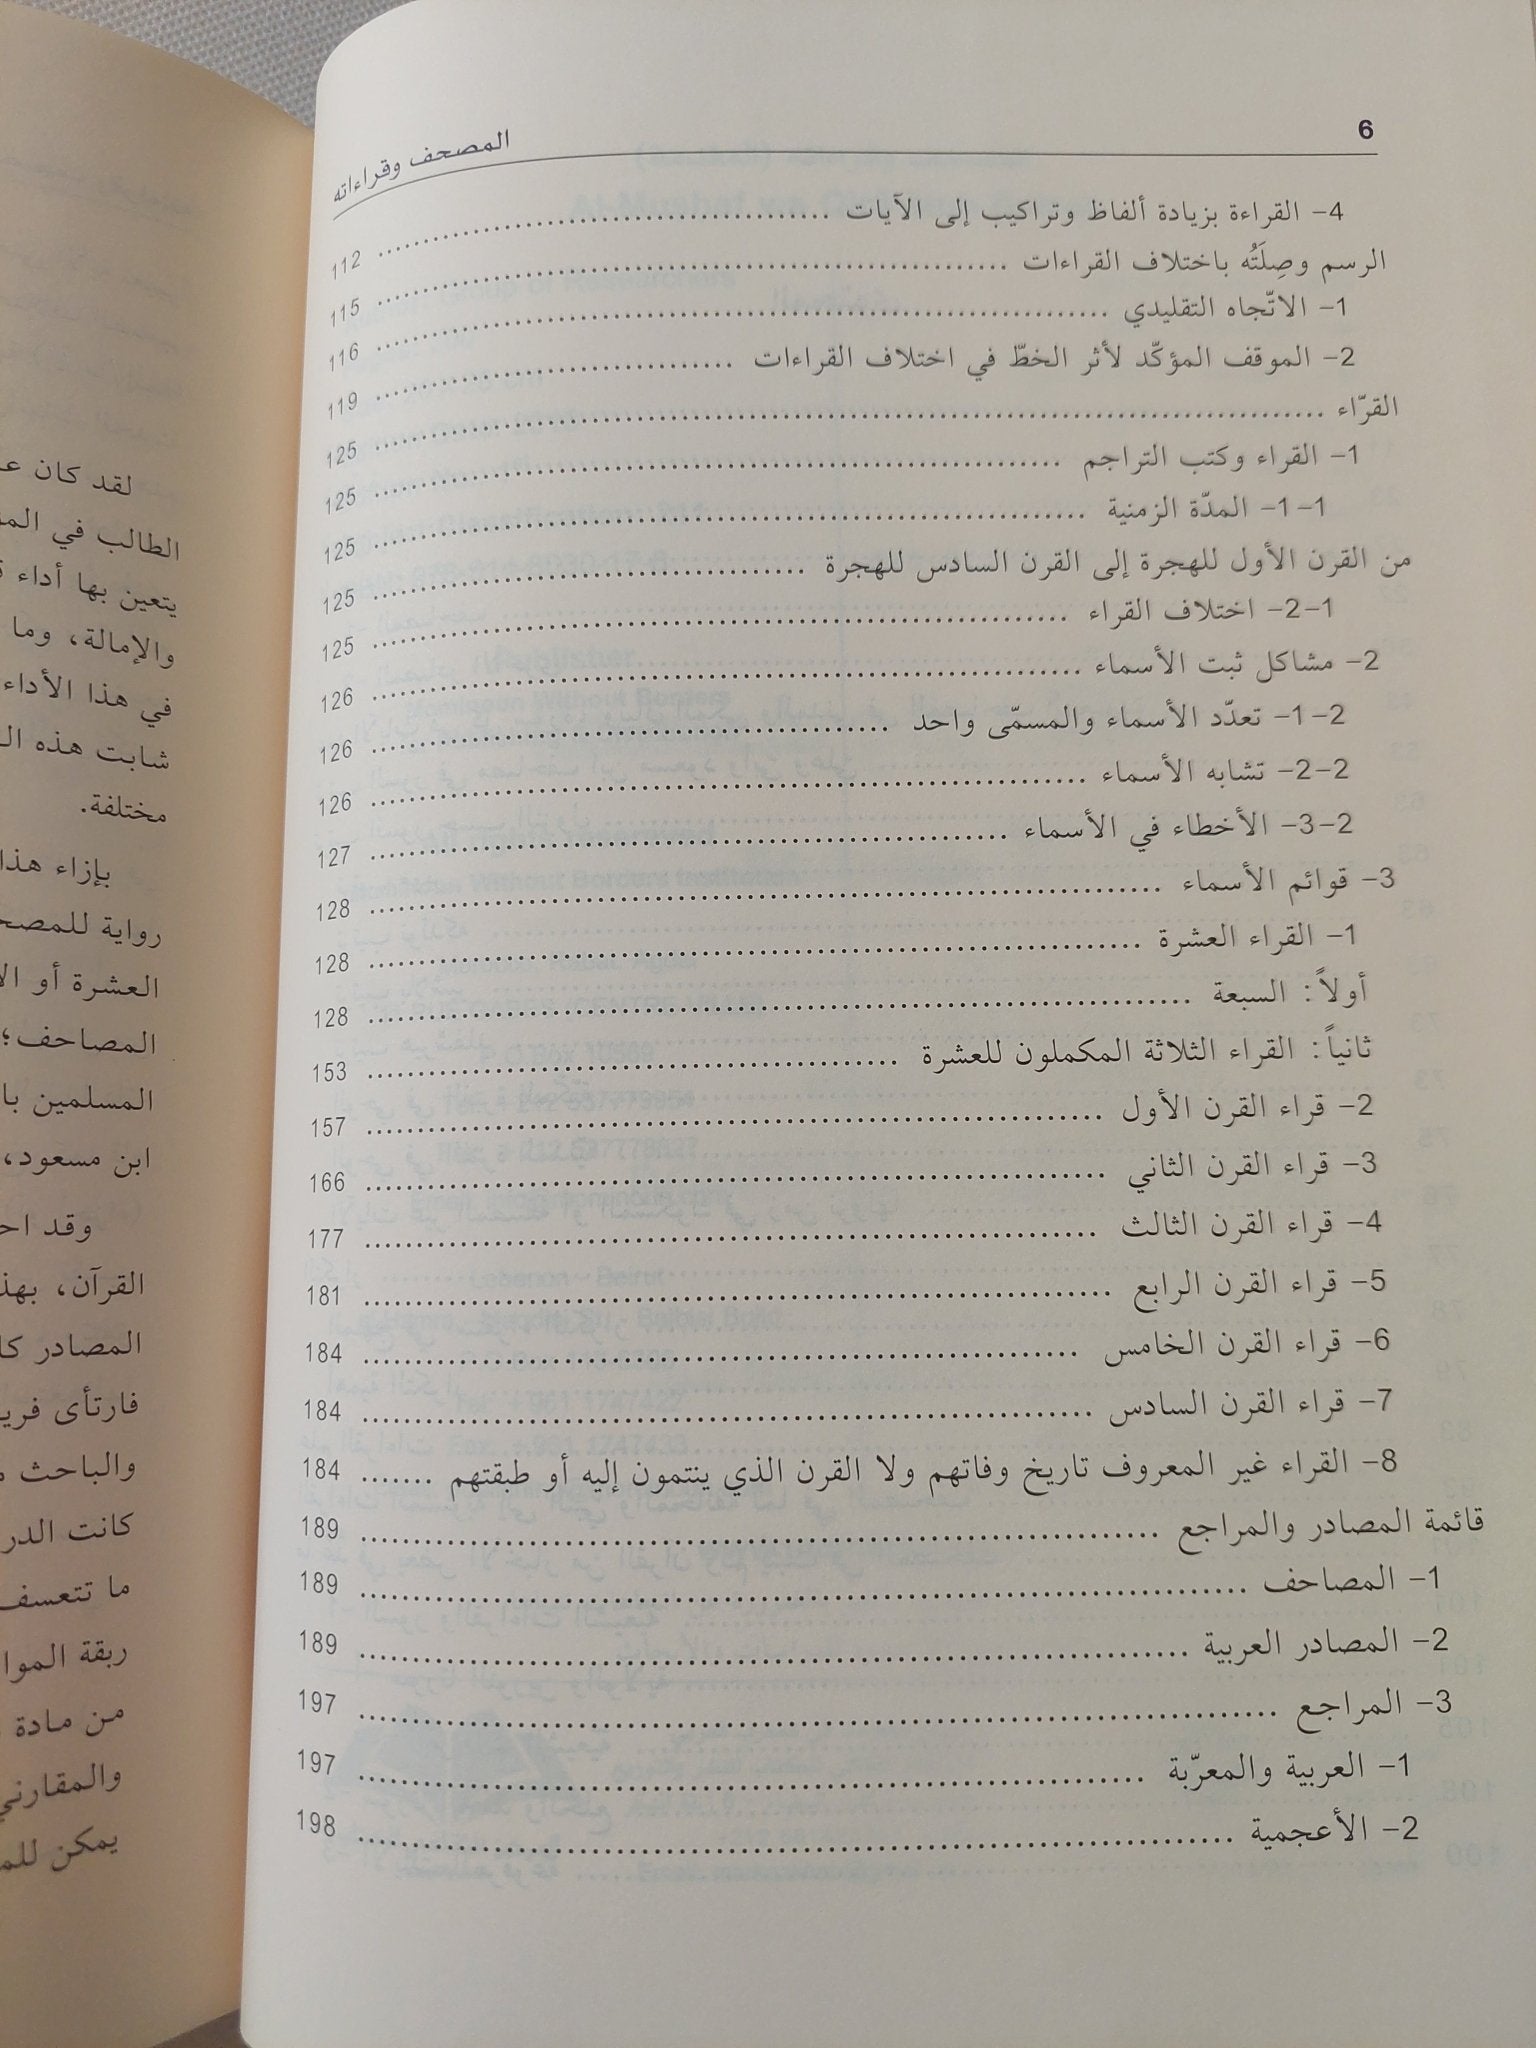 6
المصحف وقراءاته
4- القراءة بزيادة ألفاظ وتراكيب إلى الآيات ........ 112
الرسم وصِلَتُه باختلاف القراءات ........ 115
1- الاتّجاه التقليدي ........ 116
2- الموقف المؤكّد لأثر الخطّ في اختلاف القراءات ........ 119
القرّاء ........ 125
1- القراء وكتب التراجم ........ 125
1-1- المدّة الزمنية ........ 125
من القرن الأول للهجرة إلى القرن السادس للهجرة ........ 125
1-2- اختلاف القراء ........ 125
2- مشاكل ثبت الأسماء ........ 126
2-1- تعدّد الأسماء والمسمّى واحد ........ 126
2-2- تشابه الأسماء ........ 126
2-3- الأخطاء في الأسماء ........ 127
3- قوائم الأسماء ........ 128
1- القراء العشرة ........ 128
أولاً: السبعة ........ 128
ثانياً: القراء الثلاثة المكملون للعشرة ........ 153
2- قراء القرن الأول ........ 157
3- قراء القرن الثاني ........ 166
4- قراء القرن الثالث ........ 177
5- قراء القرن الرابع ........ 181
6- قراء القرن الخامس ........ 184
7- قراء القرن السادس ........ 184
8- القراء غير المعروف تاريخ وفاتهم ولا القرن الذي ينتمون إليه أو طبقتهم ....... 184
قائمة المصادر والمراجع ........ 189
1- المصاحف ........ 189
2- المصادر العربية ........ 189
3- المراجع ........ 197
1- العربية والمعرّبة ........ 197
2- الأعجمية ........ 198
لقد كان
الطالب في
يتعين بها أداء
والإمالة، وما
في هذا الأداء
شابت هذه
مختلفة.
بإزاء هذا
رواية
العشرة أو
المصاحف؛
المسلمين
ابن مسعود،
وقد
القرآن،
المصادر
فارتأى
والباحث
كانت
ما تتعسف
ربقة
من مادة
يمكن